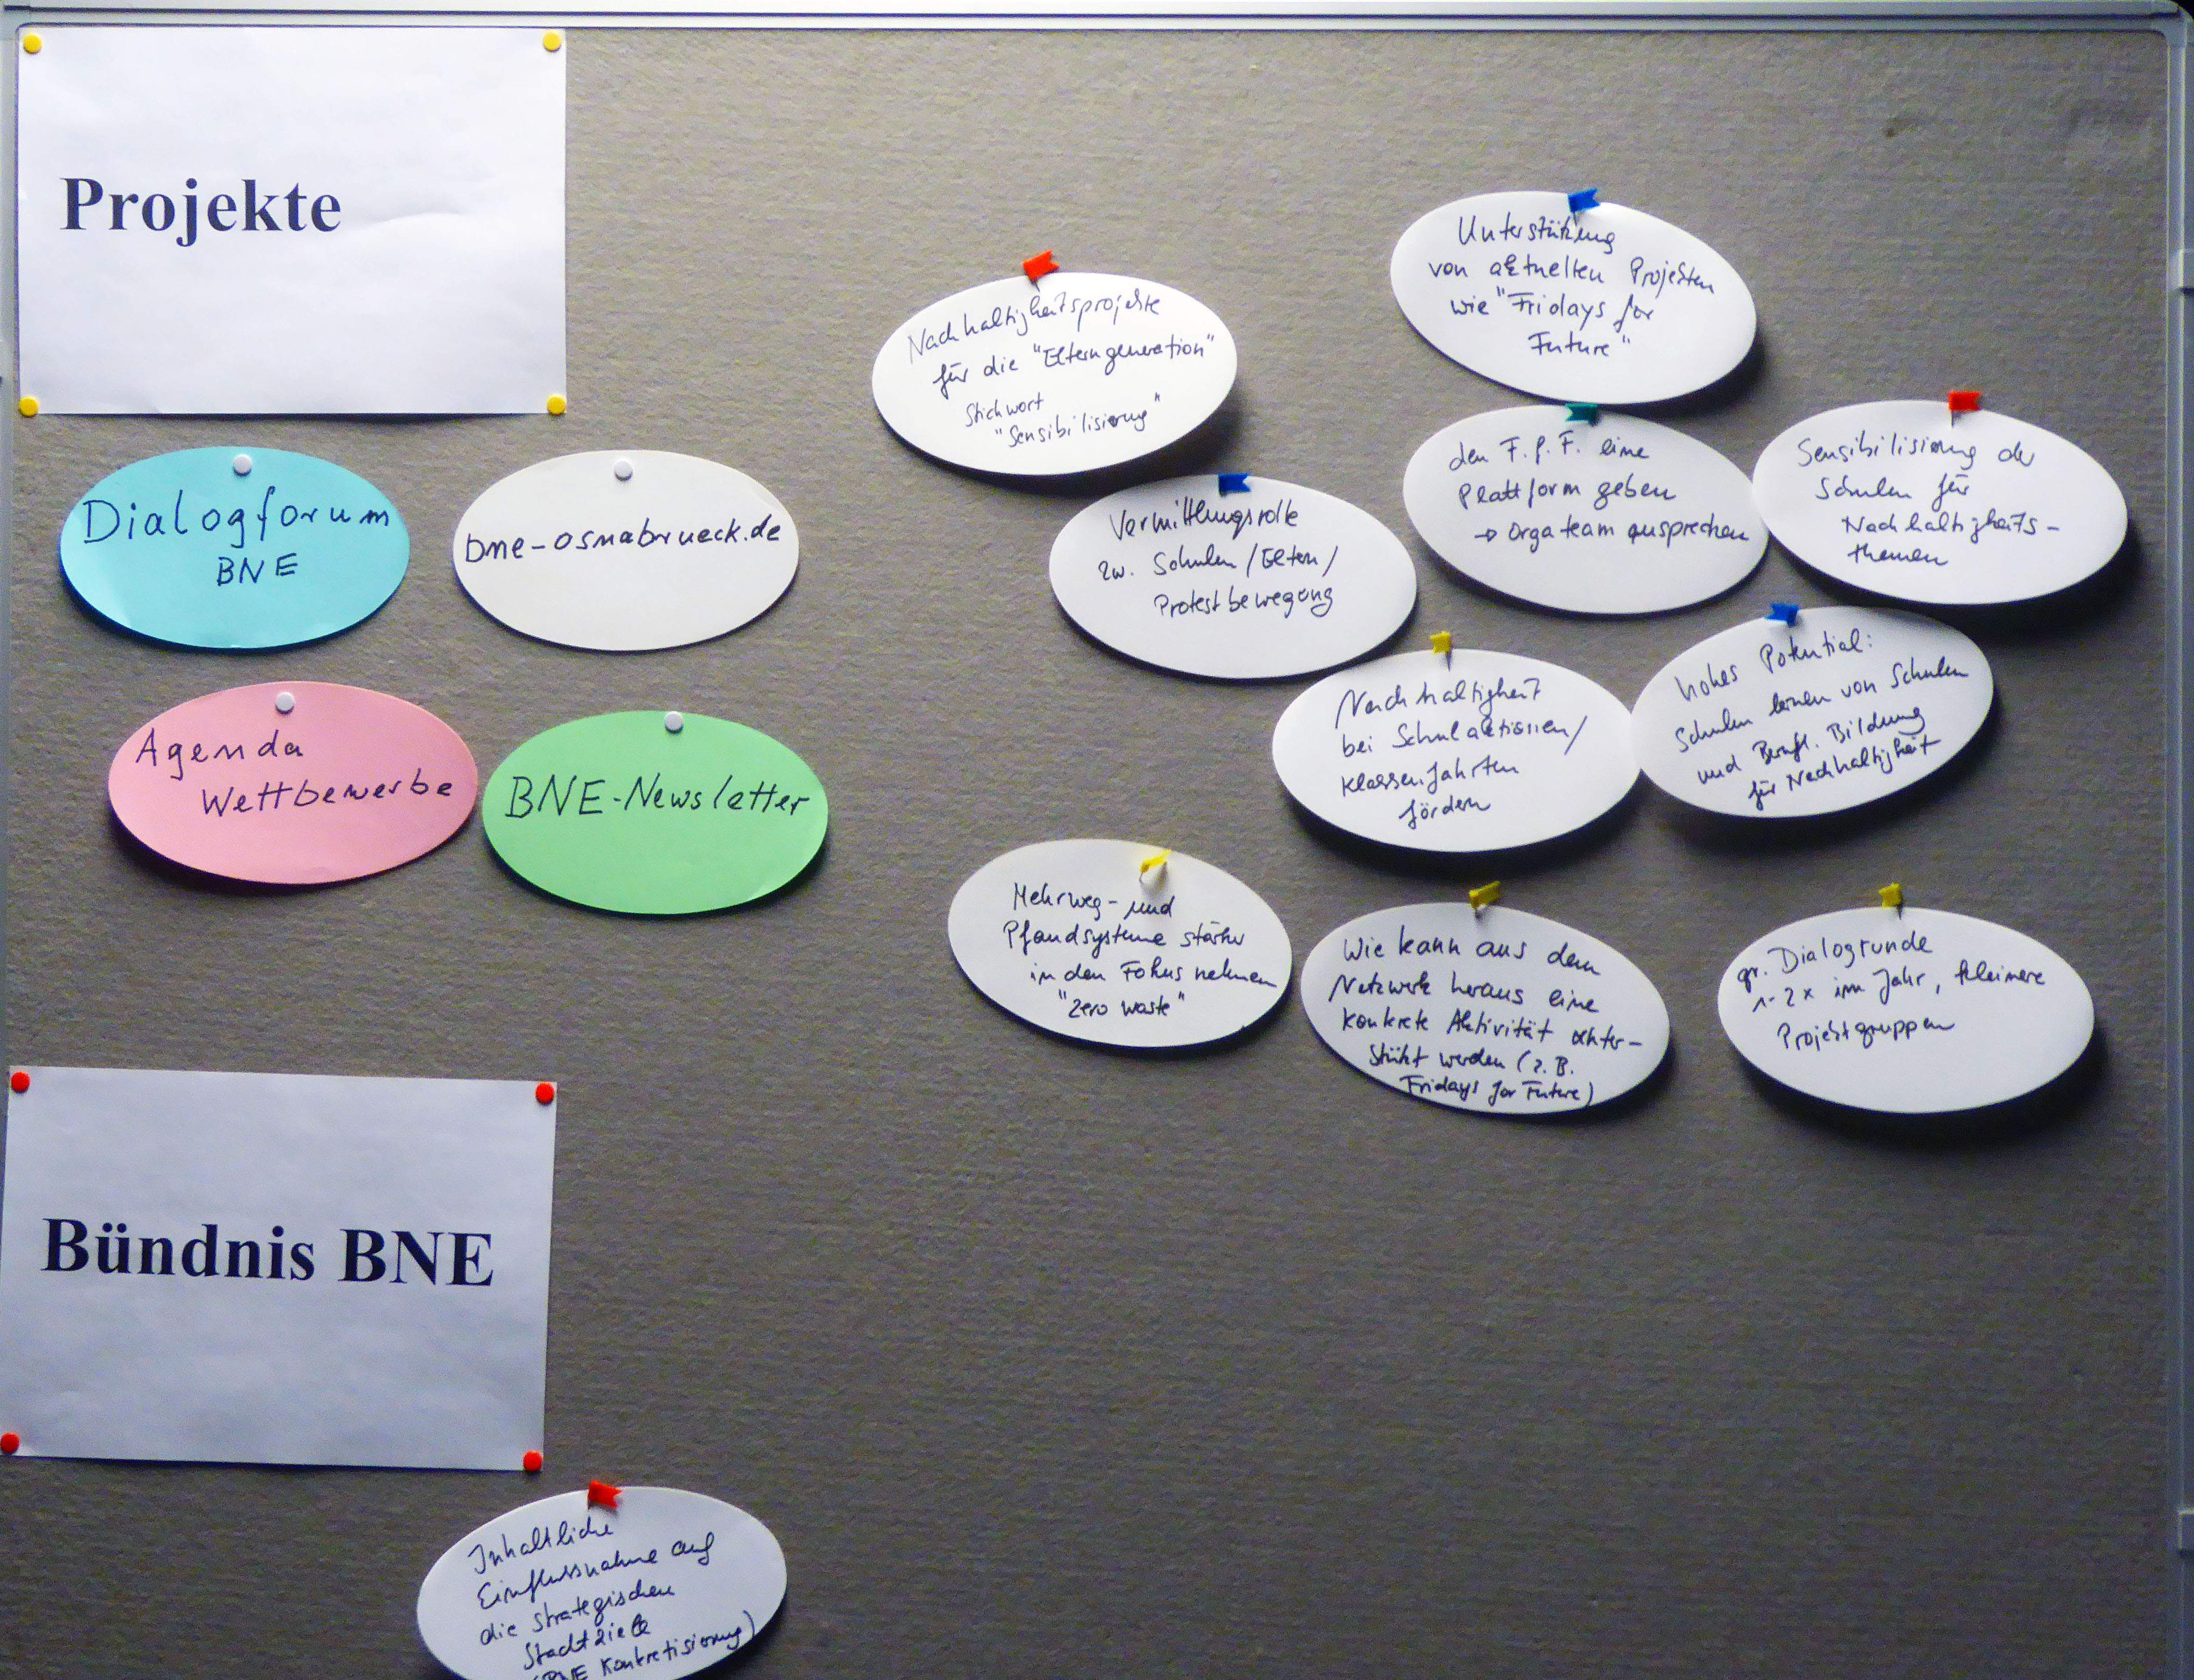 Projekte
Dialogforum
BNE
bne-osnabrueck.de
Agenda
Wettbewerbe
BNE-Newsletter
Nachhaltigkeitsprojekte
für die "Elterngeneration"
Stichwort
"Sensibilisierung"
Unterstützung
von aktuellen Projekten
wie "Fridays for
Future"
Vermittlungsrolle
zw. Schulen/Eltern/
Protestbewegung
den F.f.F. eine
Plattform geben
→ Orgateam ansprechen
Sensibilisierung der
Schulen für
Nachhaltigkeits-
themen
Nachhaltigkeit
bei Schulaktionen/
Klassenfahrten
fördern
hohes Potential:
Schulen lernen von Schulen
und Berufl. Bildung
für Nachhaltigkeit
Mehrweg- und
Pfandsysteme stärker
in den Fokus nehmen
"zero waste"
Wie kann aus dem
Netzwerk heraus eine
konkrete Aktivität unter-
stützt werden (z.B.
Fridays for Future)
gr. Dialogrunde
1-2x im Jahr, kleinere
Projektgruppen
Bündnis BNE
Inhaltliche
Einflussnahme auf
die strategischen
Stadtziele
(BNE Konkretisierung)